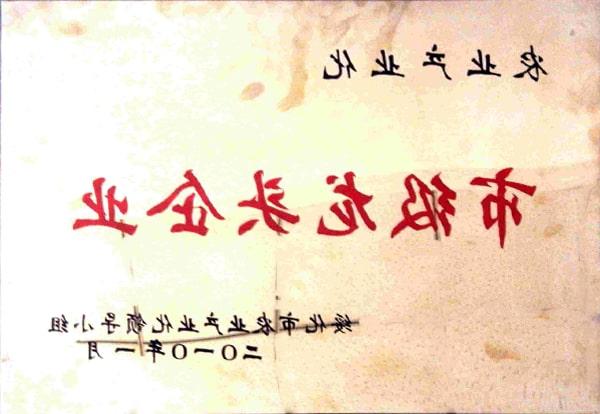 农业产业化
市级龙头企业
绥化市农业产业化领导小组
二〇一〇年一月